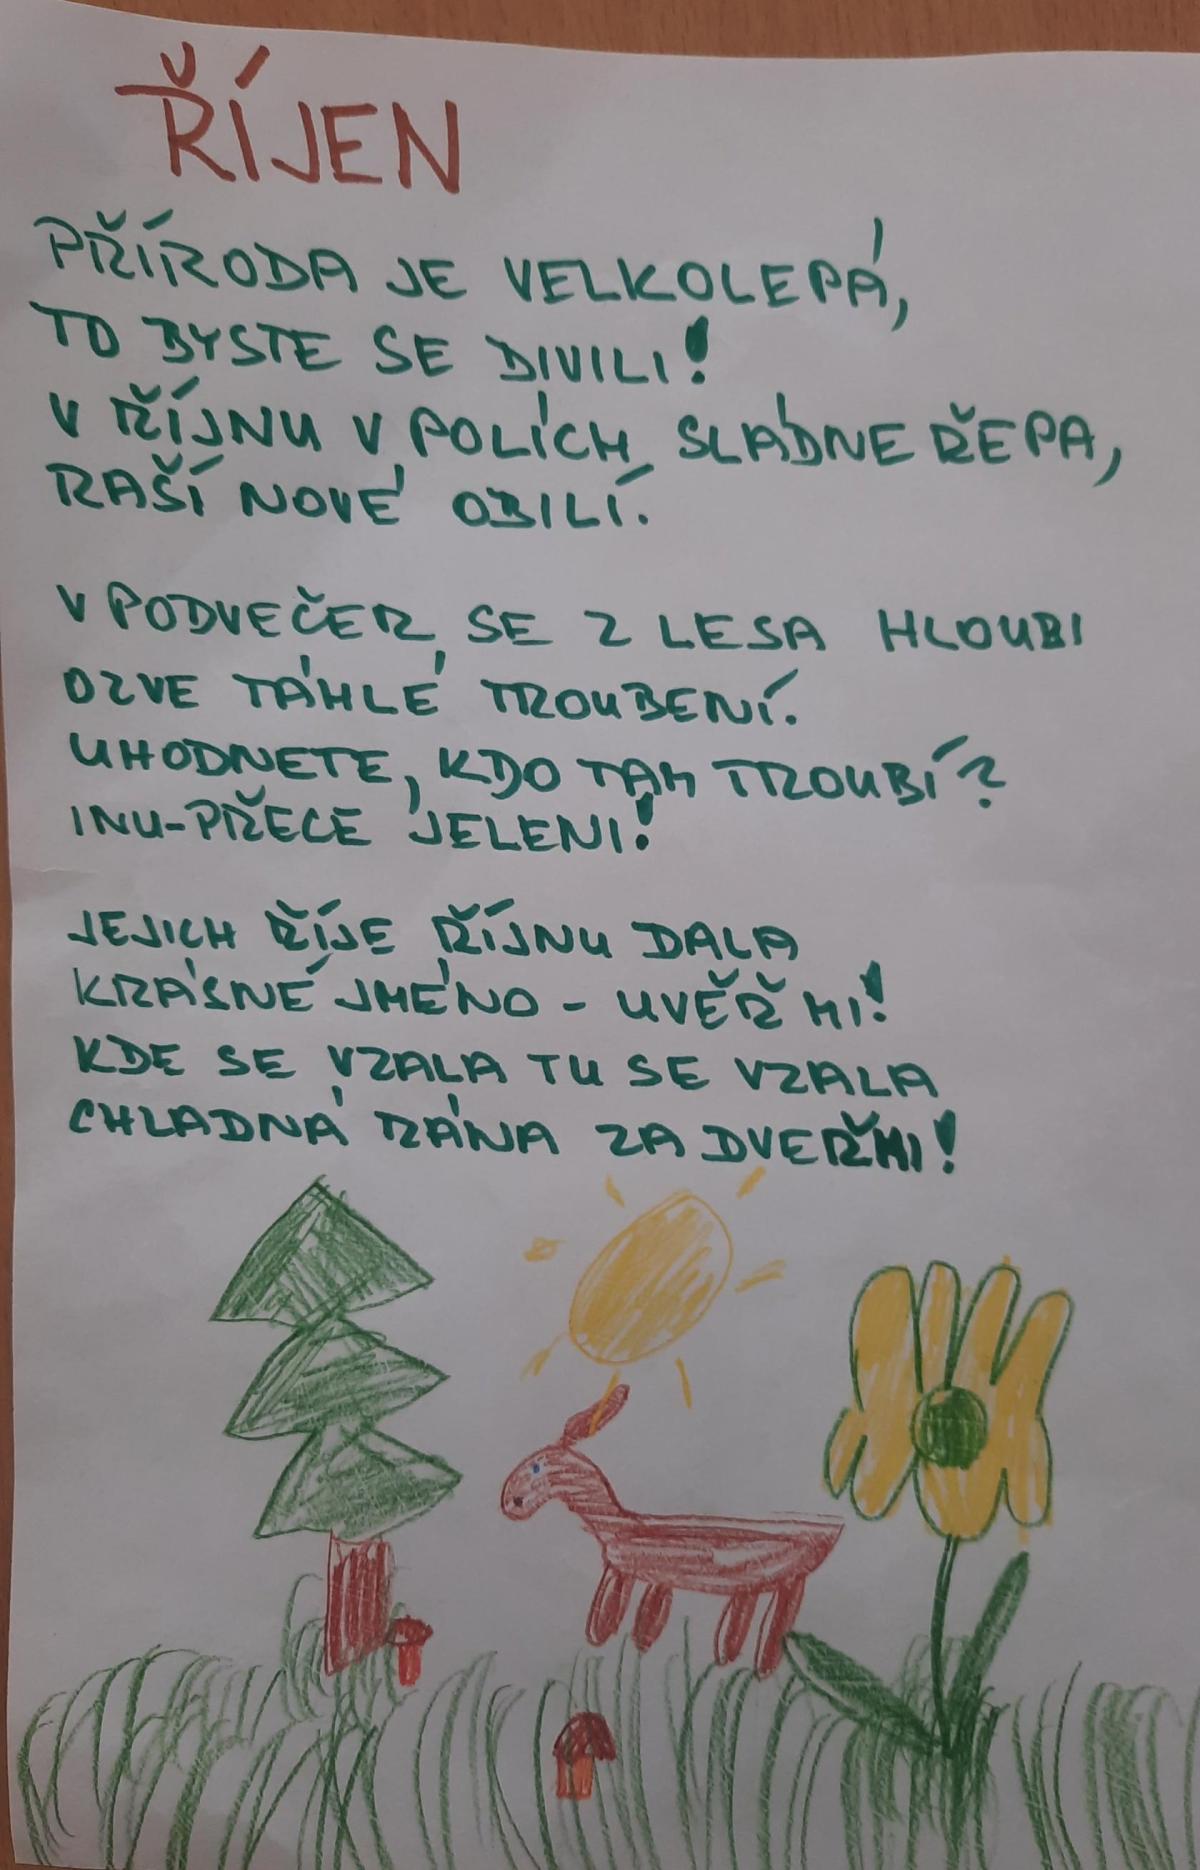 ŘÍJEN
PŘÍRODA JE VELKOLEPÁ,
TO BYSTE SE DIVILI!
V ŘÍJNU V POLÍCH SLÁDNE ŘEPA,
RAŠÍ NOVÉ OBILÍ.
V PODVEČER SE Z LESA HLOUBI
OZVE TÁHLÉ TROUBENÍ.
UHODNETE, KDO TAM TROUBÍ?
INU-PŘECE JELENI!
JEJICH ŘÍJE ŘÍJNU DALA
KRÁSNÉ JMÉNO - UVĚŘ MI!
KDE SE VZALA TU SE VZALA
CHLADNÁ RÁNA ZA DVEŘMI!